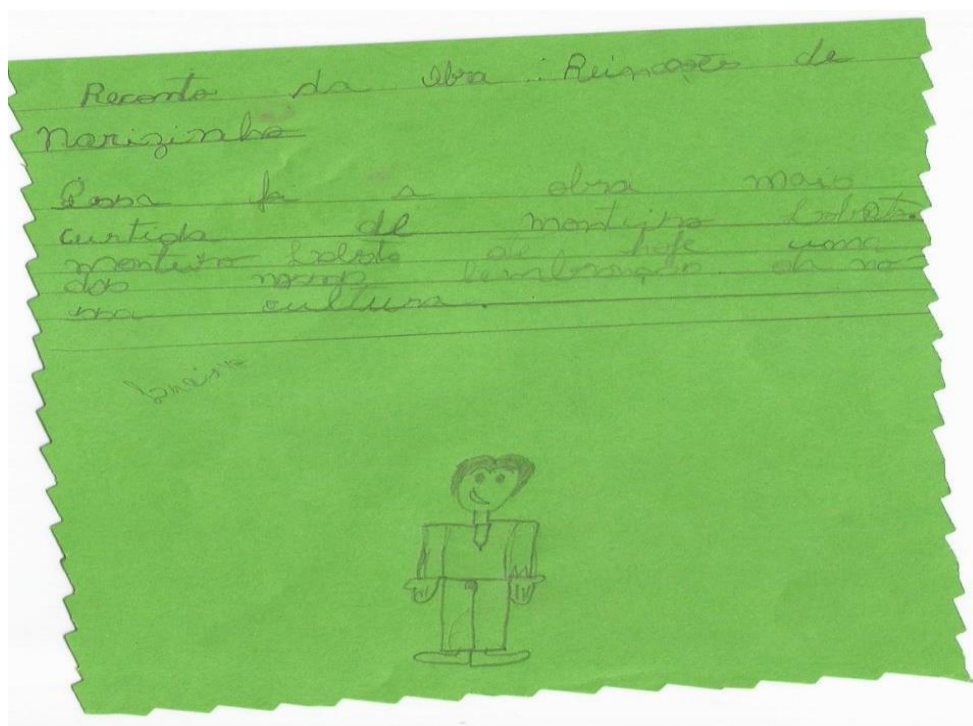 Reconto da obra : Reinações de
Narizinho
Essa foi a obra mais
curtida de monteiro Lobato.
monteiro Lobato de hoje uma
das lembranças da no-
ssa cultura.